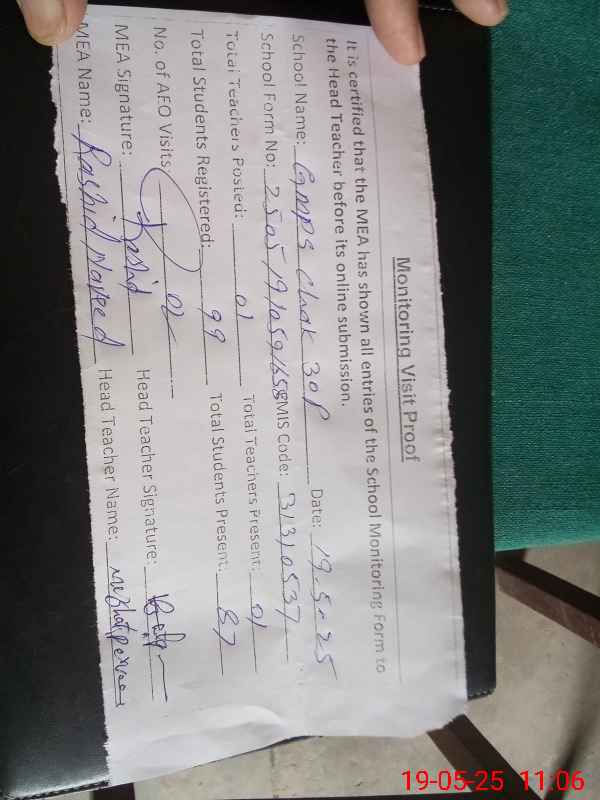 Monitoring Visit Proof
It is certified that the MEA has shown all entries of the School Monitoring Form to
the Head Teacher before its online submission.
School Name: GMPS Chak 30P Date: 19.5.25
School Form No: MIS Code: 31310537
Total Teachers Posted: 01 Total Teachers Present: 01
Total Students Registered: 99 Total Students Present: 87
No. of AEO Visits: 02
MEA Signature: Rashid Head Teacher Signature:
MEA Name: Rashid Naveed Head Teacher Name:
19-05-25 11:06